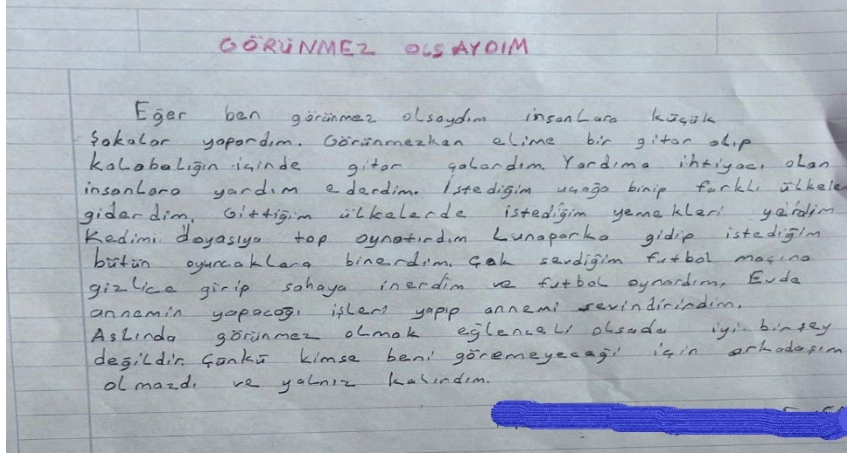 GÖRÜNMEZ OLSAYDIM
Eğer ben görünmez olsaydım insanlara küçük
şakalar yapardım. Görünmezken elime bir gitar alıp
kalabalığın içinde gitar çalardım. Yardıma ihtiyacı olan
insanlara yardım ederdim. İstediğim uçağa binip farklı ülkele
giderdim. Gittiğim ülkelerde istediğim yemekleri yerdim
Kedimi doyasıya top oynatırdım Lunaparka gidip istediğim
bütün oyuncaklara binerdim. Çok sevdiğim futbol maçına
gizlice girip sahaya inerdim ve futbol oynardım. Evde
annemin yapacağı işleri yapıp annemi sevindirirdim.
Aslında görünmez olmak eğlenceli olsada iyi birşey
değildir. Çünkü kimse beni göremeyeceği için arkadaşım
olmazdı ve yalnız kalırdım.